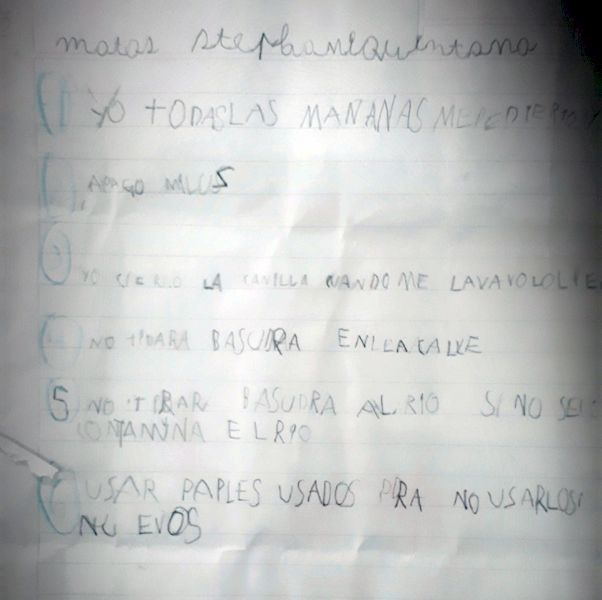 matas stephaniquintana
1 YO TODASLAS MAÑANAS ME
APAGO MILUS
3
YO CIERIO LA CANILLA CUANDO ME
4 NO TIDARA BASUDRA ENLLACALLE
5 NO TIRAR BASUDRA AL RIO SI NO SE
CONTAMINA EL RIO
6 USAR PAPLES USADOS PARA NO USARLOS
NU EVOS